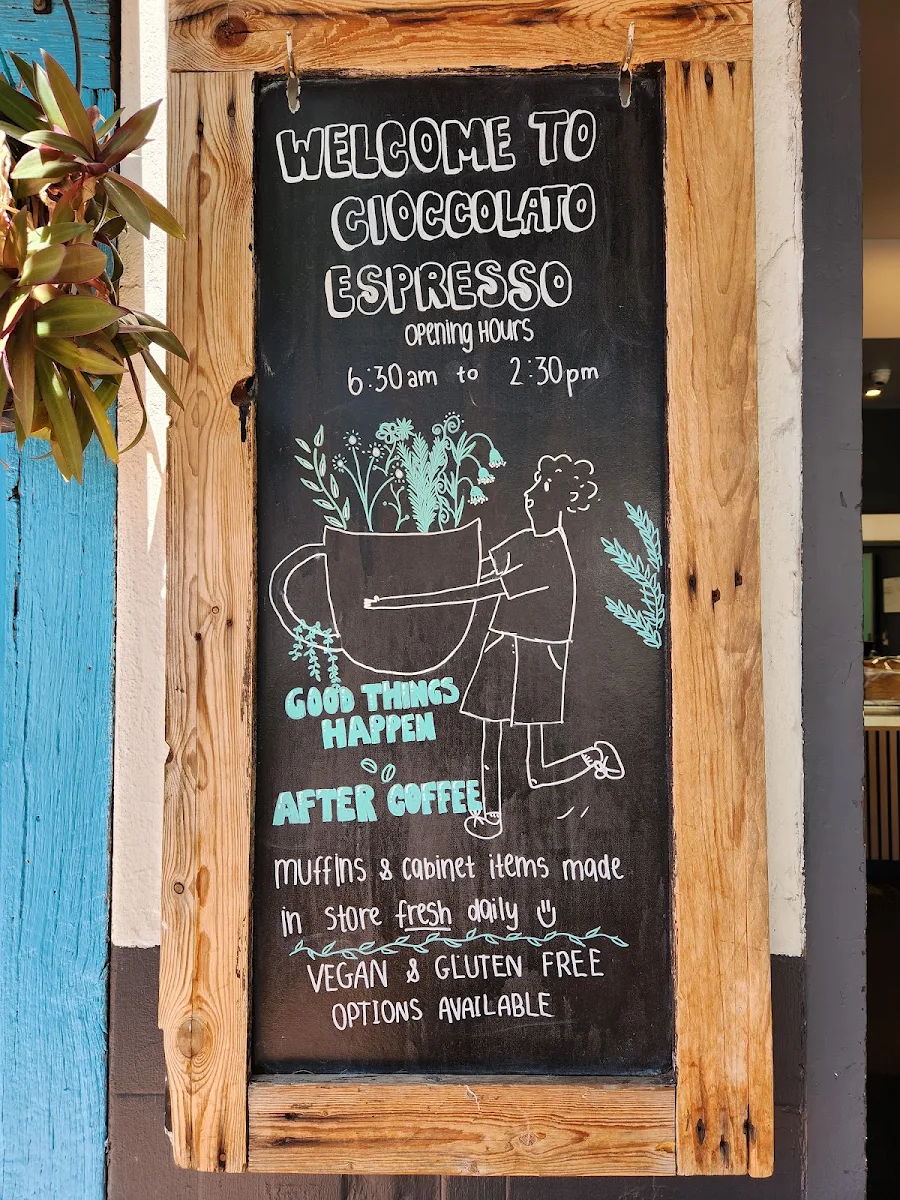 WELCOME TO
CIOCCOLATO
ESPRESSO
opening HOURS
6:30am to 2:30pm
GOOD THINGS
HAPPEN
AFTER COFFEE
muffins & cabinet items made
in store fresh daily
VEGAN & GLUTEN FREE
OPTIONS AVAILABLE